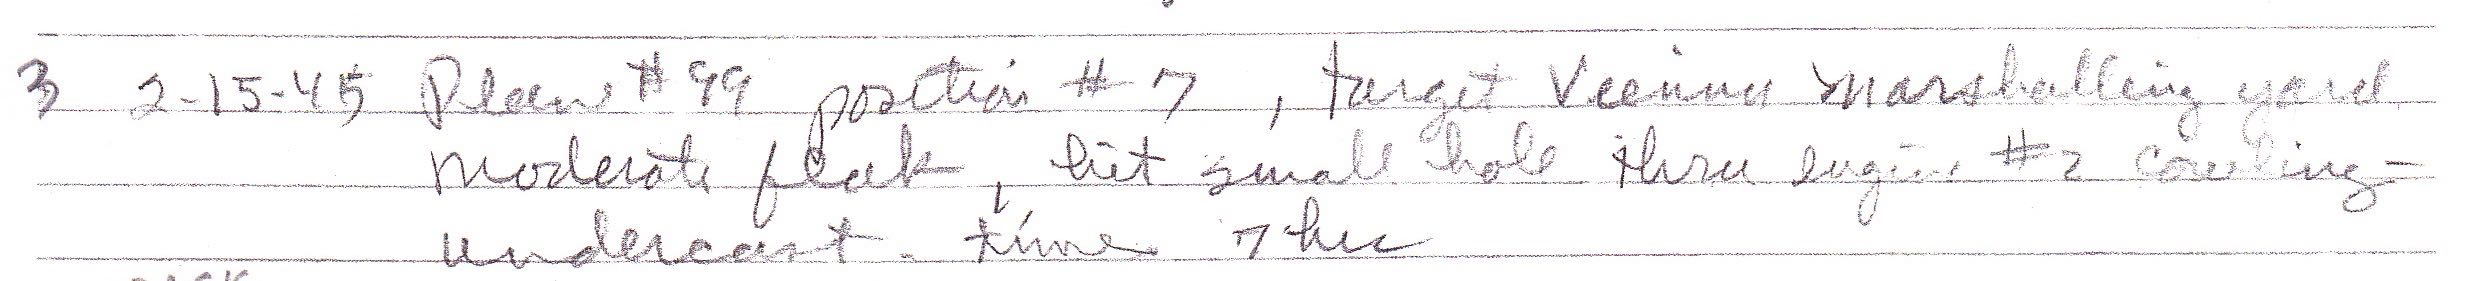 3 2-15-45 Plane #99 position #7, target Vienna Marshalling yard
Moderate flak, hit small hole thru engine #2 cowling-
undercast. time 7 hrs